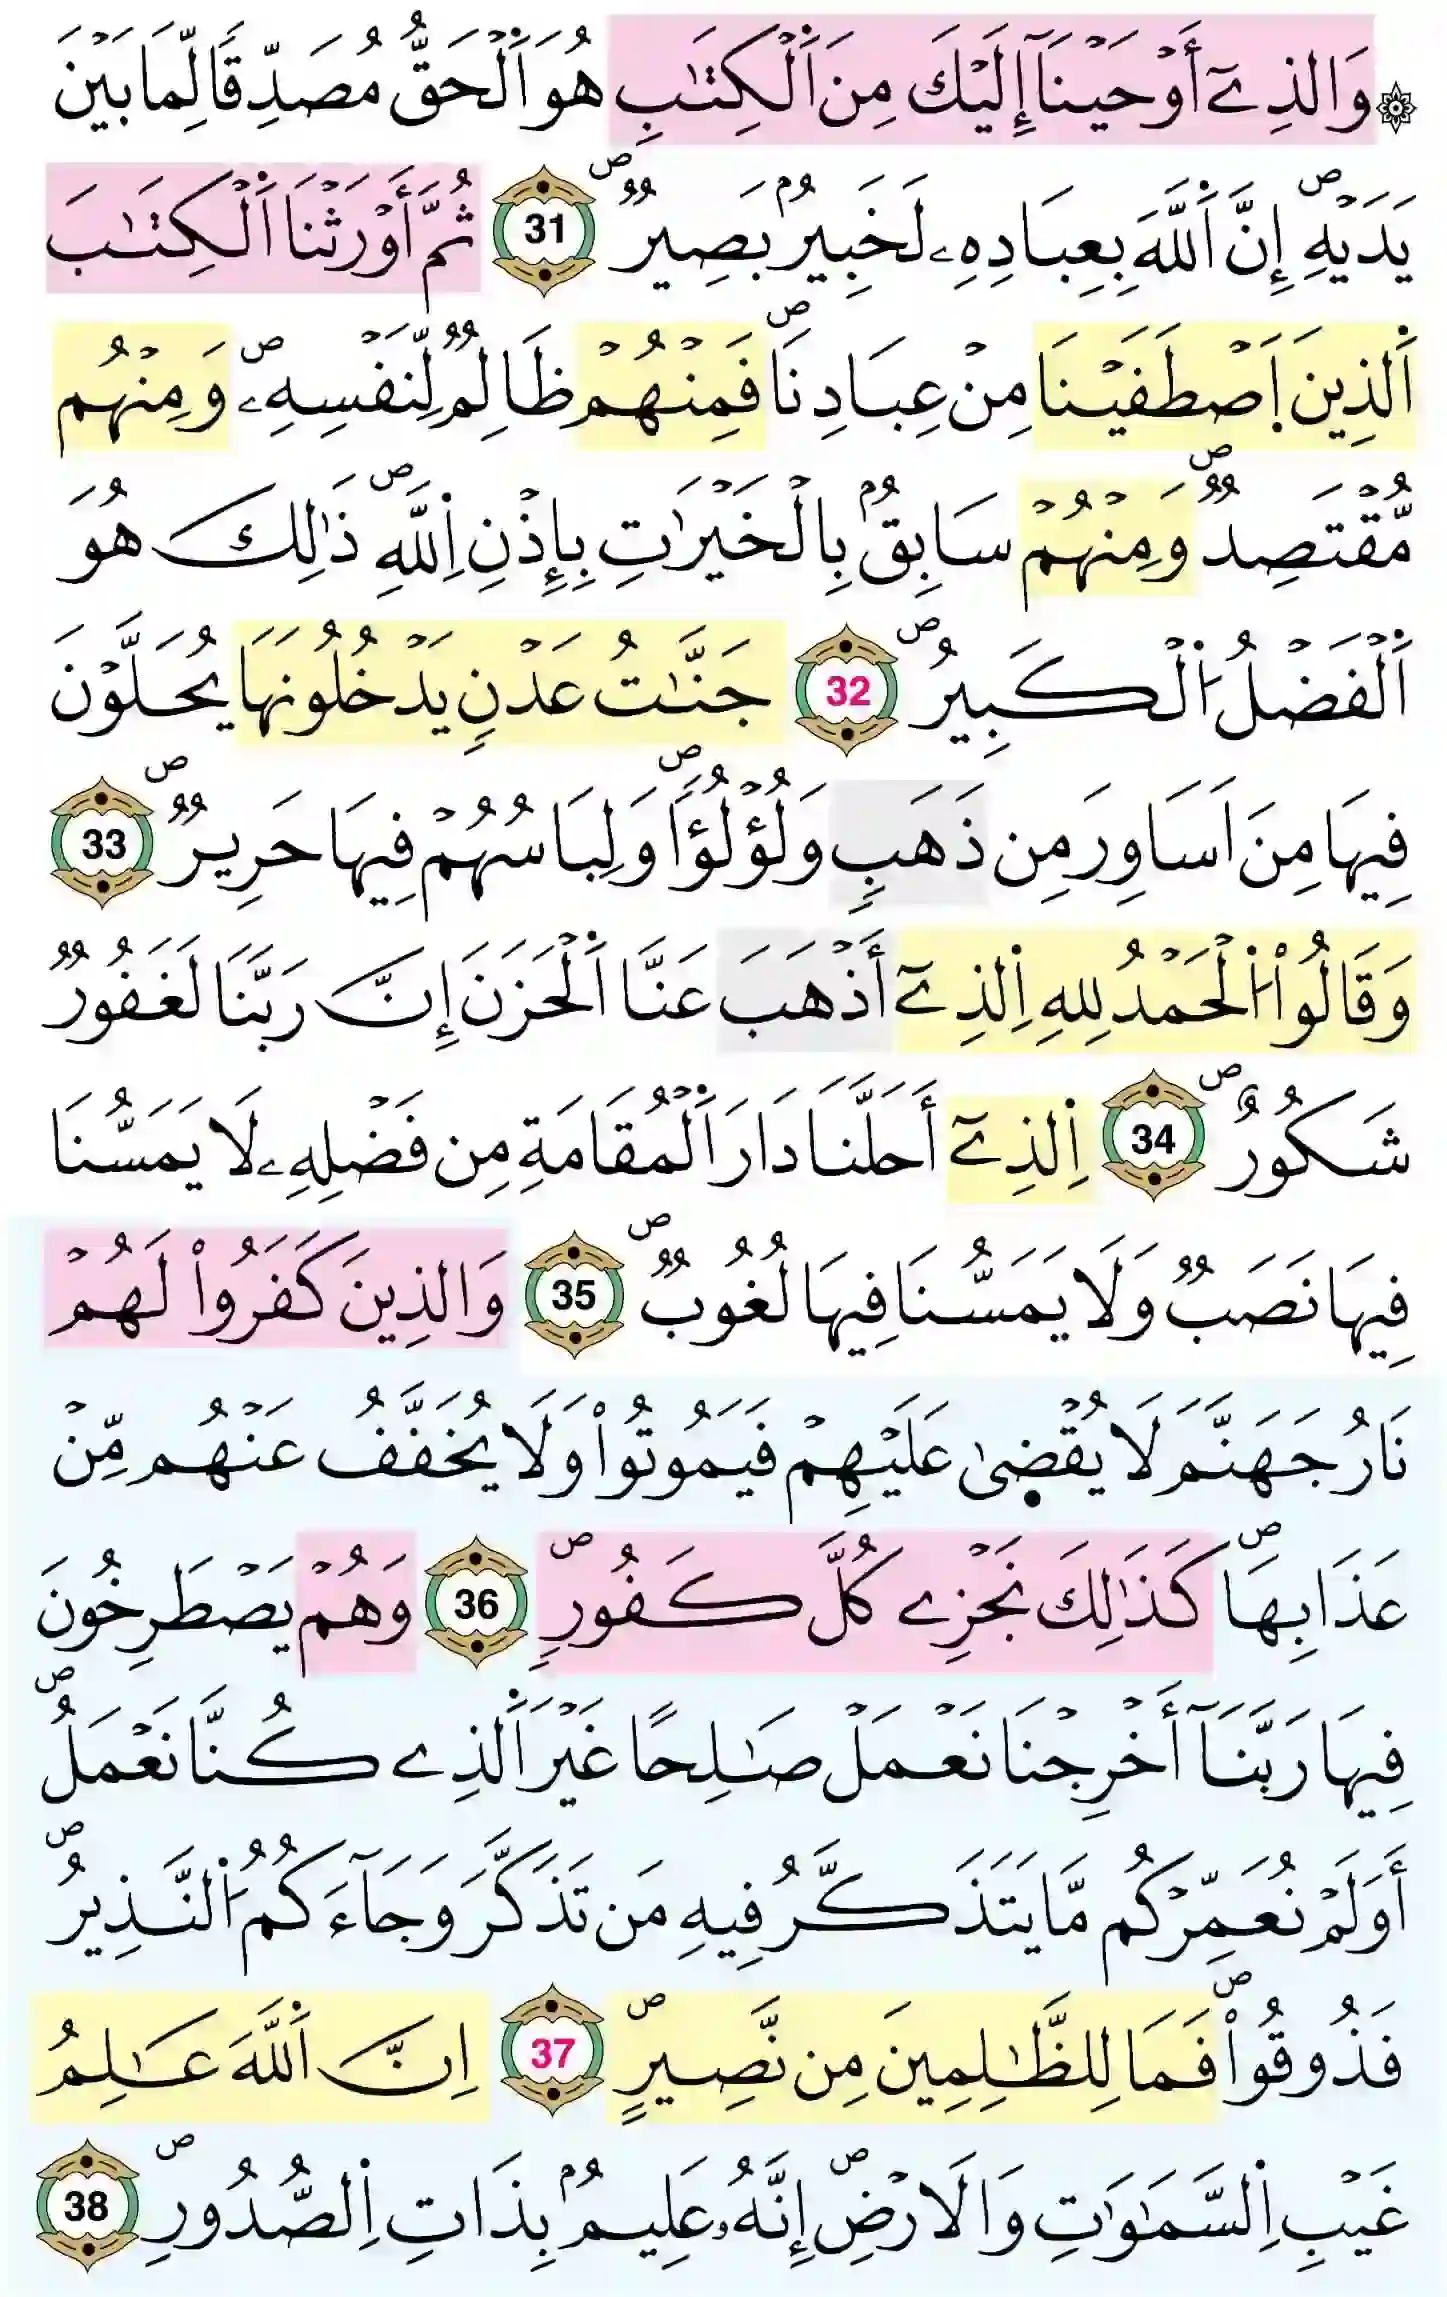 ۞ وَالذِےٓ أَوْحَيْنَآ إِلَيْكَ مِنَ اَ۬لْكِتَٰبِ هُوَ اَ۬لْحَقُّ مُصَدِّقاٗ لِّمَا بَيْنَ
يَدَيْهِۖ إِنَّ اَ۬للَّهَ بِعِبَادِهِۦ لَخَبِيرُۢ بَصِيرٞۖ 31 ثُمَّ أَوْرَثْنَا اَ۬لْكِتَٰبَ
اَ۬لذِينَ اَ۪صْطَفَيْنَا مِنْ عِبَادِنَاۖ فَمِنْهُمْ ظَالِمٞ لِّنَفْسِهِۦۖ وَمِنْهُم
مُّقْتَصِدٞۖ وَمِنْهُمْ سَابِقُۢ بِالْخَيْرَٰتِ بِإِذْنِ اِ۬للَّهِۖ ذَٰلِكَ هُوَ
اَ۬لْفَضْلُ اُ۬لْكَبِيرُۖ 32 جَنَّٰتُ عَدْنٖ يَدْخُلُونَهَا يُحَلَّوْنَ
فِيهَا مِنَ اَسَاوِرَ مِن ذَهَبٖ وَلُؤْلُؤاٗۖ وَلِبَاسُهُمْ فِيهَا حَرِيرٞۖ 33
وَقَالُواْ اُ۬لْحَمْدُ لِلهِ اِ۬لذِےٓ أَذْهَبَ عَنَّا اَ۬لْحَزَنَ إِنَّ رَبَّنَا لَغَفُورٞ
شَكُورٌۖ 34 اِ۬لذِےٓ أَحَلَّنَا دَارَ اَ۬لْمُقَامَةِ مِن فَضْلِهِۦ لَا يَمَسُّنَا
فِيهَا نَصَبٞ وَلَا يَمَسُّنَا فِيهَا لُغُوبٞۖ 35 وَالذِينَ كَفَرُواْ لَهُمْ
نَارُ جَهَنَّمَ لَا يُقْض۪يٰ عَلَيْهِمْ فَيَمُوتُواْ وَلَا يُخَفَّفُ عَنْهُم مِّنْ
عَذَابِهَاۖ كَذَٰلِكَ نَجْزِے كُلَّ كَفُورٖۖ 36 وَهُمْ يَصْطَرِخُونَ
فِيهَا رَبَّنَآ أَخْرِجْنَا نَعْمَلْ صَٰلِحاً غَيْرَ اَ۬لذِے كُنَّا نَعْمَلُۖ
أَوَلَمْ نُعَمِّرْكُم مَّا يَتَذَكَّرُ فِيهِ مَن تَذَكَّرَ وَجَآءَكُمُ اُ۬لنَّذِيرُۖ
فَذُوقُواْۖ فَمَا لِلظَّٰلِمِينَ مِن نَّصِيرٍۖ 37 اِنَّ اَ۬للَّهَ عَٰلِمُ
غَيْبِ اِ۬لسَّمَٰوَٰتِ وَالَارْضِۖ إِنَّهُۥ عَلِيمُۢ بِذَاتِ اِ۬لصُّدُورِۖ 38